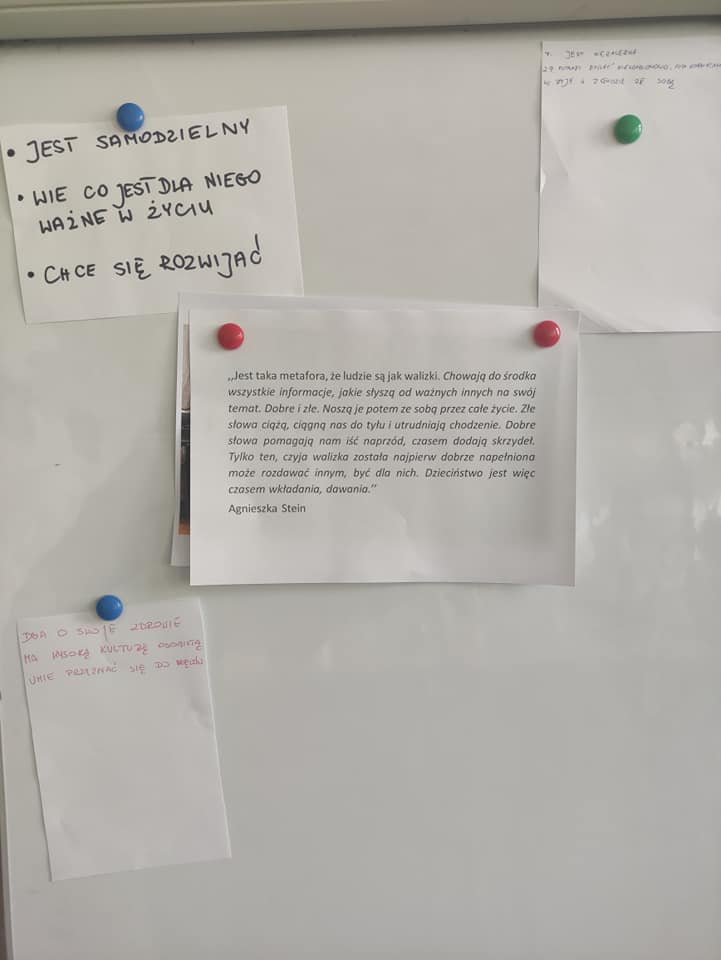 • JEST SAMODZIELNY
• WIE CO JEST DLA NIEGO
WAŻNE W ŻYCIU
• CHCE SIĘ ROZWIJAĆ
JEST
ŻYJE W ZGODZIE ZE SOBĄ
„Jest taka metafora, że ludzie są jak walizki. Chowają do środka
wszystkie informacje, jakie słyszą od ważnych innych na swój
temat. Dobre i złe. Noszą je potem ze sobą przez całe życie. Złe
słowa ciążą, ciągną nas do tyłu i utrudniają chodzenie. Dobre
słowa pomagają nam iść naprzód, czasem dodają skrzydeł.
Tylko ten, czyja walizka została najpierw dobrze napełniona
może rozdawać innym, być dla nich. Dzieciństwo jest więc
czasem wkładania, dawania.”
Agnieszka Stein
DBA O SWOJE ZDROWIE
MA WYSOKĄ KULTURĘ OSOBISTĄ
UMIE PRZYZNAĆ SIĘ DO BŁĘDU